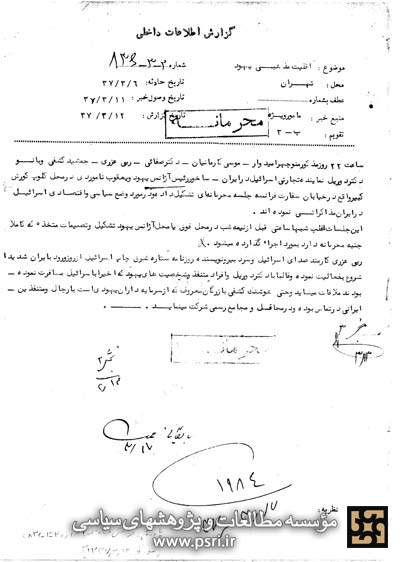 گزارش اطلاعات داخلی
موضوع : اقلیت مذهبی یهود
شماره
محل : تهران
تاریخ حادثه : ۳۷/۳/۶
عطف بشماره
تاریخ وصول خبر : ۳۷/۳/۱۱
منبع خبر : مامور ویژه
تاریخ گزارش : ۳۷/۳/۱۲
تقویم : ب - ۳
محرمانه
ساعت ۲۲ روز مذکور منوچهر امیدوار - موسی کارمانیان - دکتر صفائی - ربی عزری - جمشید کشفی و بانو
دکتر دوریل نماینده تجارتی اسرائیل در ایران - رئیس آژانس یهود و یعقوب نامور ی در محل کلوپ کورش
کبیر واقع در خیابان سفارت فرانسه جلسه محرمانه ای تشکیل داده و در مورد وضع سیاسی و اقتصادی اسرائیل
در ایران مذاکراتی نموده اند .
این جلسات اغلب شبها ساعتی قبل از نیمه شب در محل فوق یا محل آژانس یهود تشکیل و تصمیمات متخذه که کاملا
جنبه محرمانه دارد بمورد اجراء گذارده میشود .
ربی عزری کارمند صدای اسرائیل و سردبیر و نویسنده روزنامه ستاره شرق چاپ اسرائیل از روز ورود بایران شدیدا
شروع بفعالیت نموده و غالبا با دکتر دوریل و افراد متنفذ و شخصیت های یهود که اخیرا باسرائیل مسافرت نموده
بودند ملاقات مینماید و حتی هوشنگ کشفی بازرگان معروف که از سرمایه داران یهود است با رجال و متنفذین
ایرانی در تماس بوده و در محافل و مجامع رسمی شرکت مینماید .
۱۹۸۴
نظریه :
مؤسسه مطالعات و پژوهشهای سیاسی
www.psri.ir